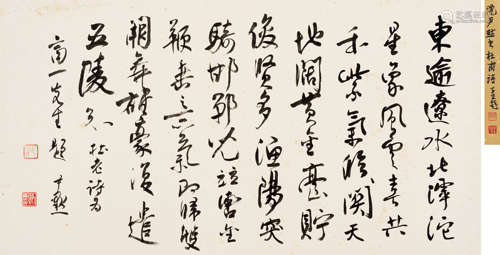 東逾遼水北滹沱
星象風雲喜共
和紫氣臨關天
地闊黃金臺貯
俊賢多漁陽突
騎邯鄲兒並轡金
鞭垂意氣即歸雙
闕舞雄豪復遣
五陵知 杜老詩為
一先生題 尹默
沈尹默書杜甫詩